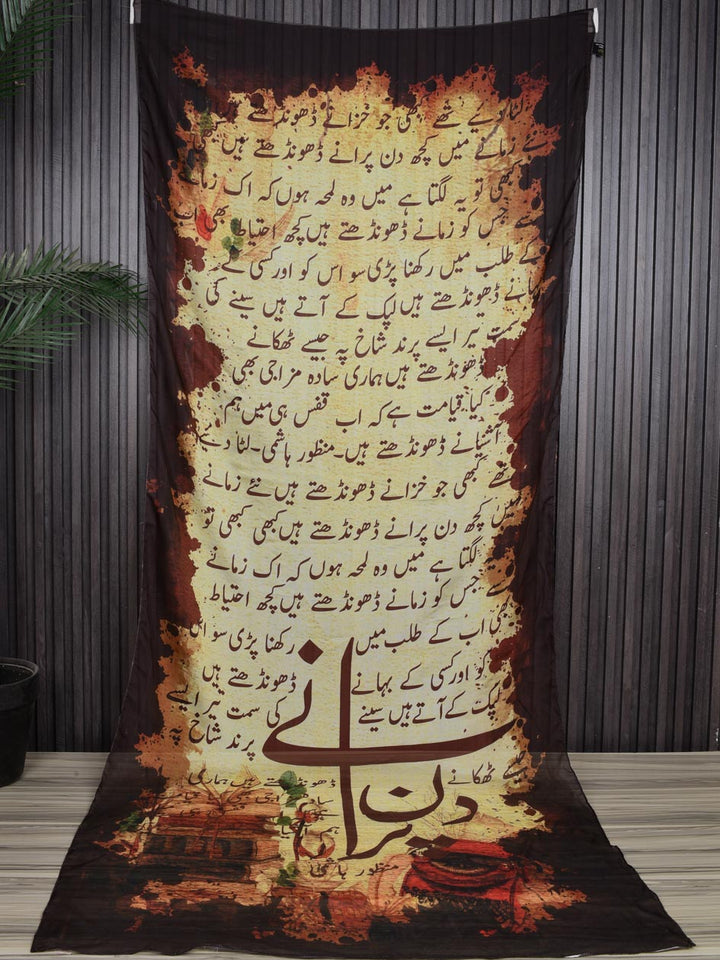 لٹا دیے تھے کبھی جو خزانے ڈھونڈھتے ہیں
نئے زمانے میں کچھ دن پرانے ڈھونڈھتے ہیں کبھی
کبھی تو یہ لگتا ہے میں وہ لمحہ ہوں کہ اک زمانے
سے جس کو زمانے ڈھونڈھتے ہیں کچھ احتیاط بھی اب
کے طلب میں رکھنا پڑی سو اس کو اور کسی کے
بہانے ڈھونڈھتے ہیں لپک کے آتے ہیں سینے کی
سمت تیر ایسے پرند شاخ پہ جیسے ٹھکانے
ڈھونڈھتے ہیں ہماری سادہ مزاجی بھی
کیا قیامت ہے کہ اب قفس ہی میں ہم
آشیانے ڈھونڈھتے ہیں۔منظور ہاشمی۔لٹا دیے
تھے کبھی جو خزانے ڈھونڈھتے ہیں نئے زمانے
میں کچھ دن پرانے ڈھونڈھتے ہیں کبھی کبھی تو
لگتا ہے میں وہ لمحہ ہوں کہ اک زمانے
سے جس کو زمانے ڈھونڈھتے ہیں کچھ احتیاط
بھی اب کے طلب میں رکھنا پڑی سو اس
کو اور کسی کے بہانے ڈھونڈھتے ہیں
لپک کے آتے ہیں سینے کی سمت تیر ایسے
پرند شاخ پہ
جیسے ٹھکانے ڈھونڈھتے ہیں ہماری
منظور ہاشمی
دن پرانے